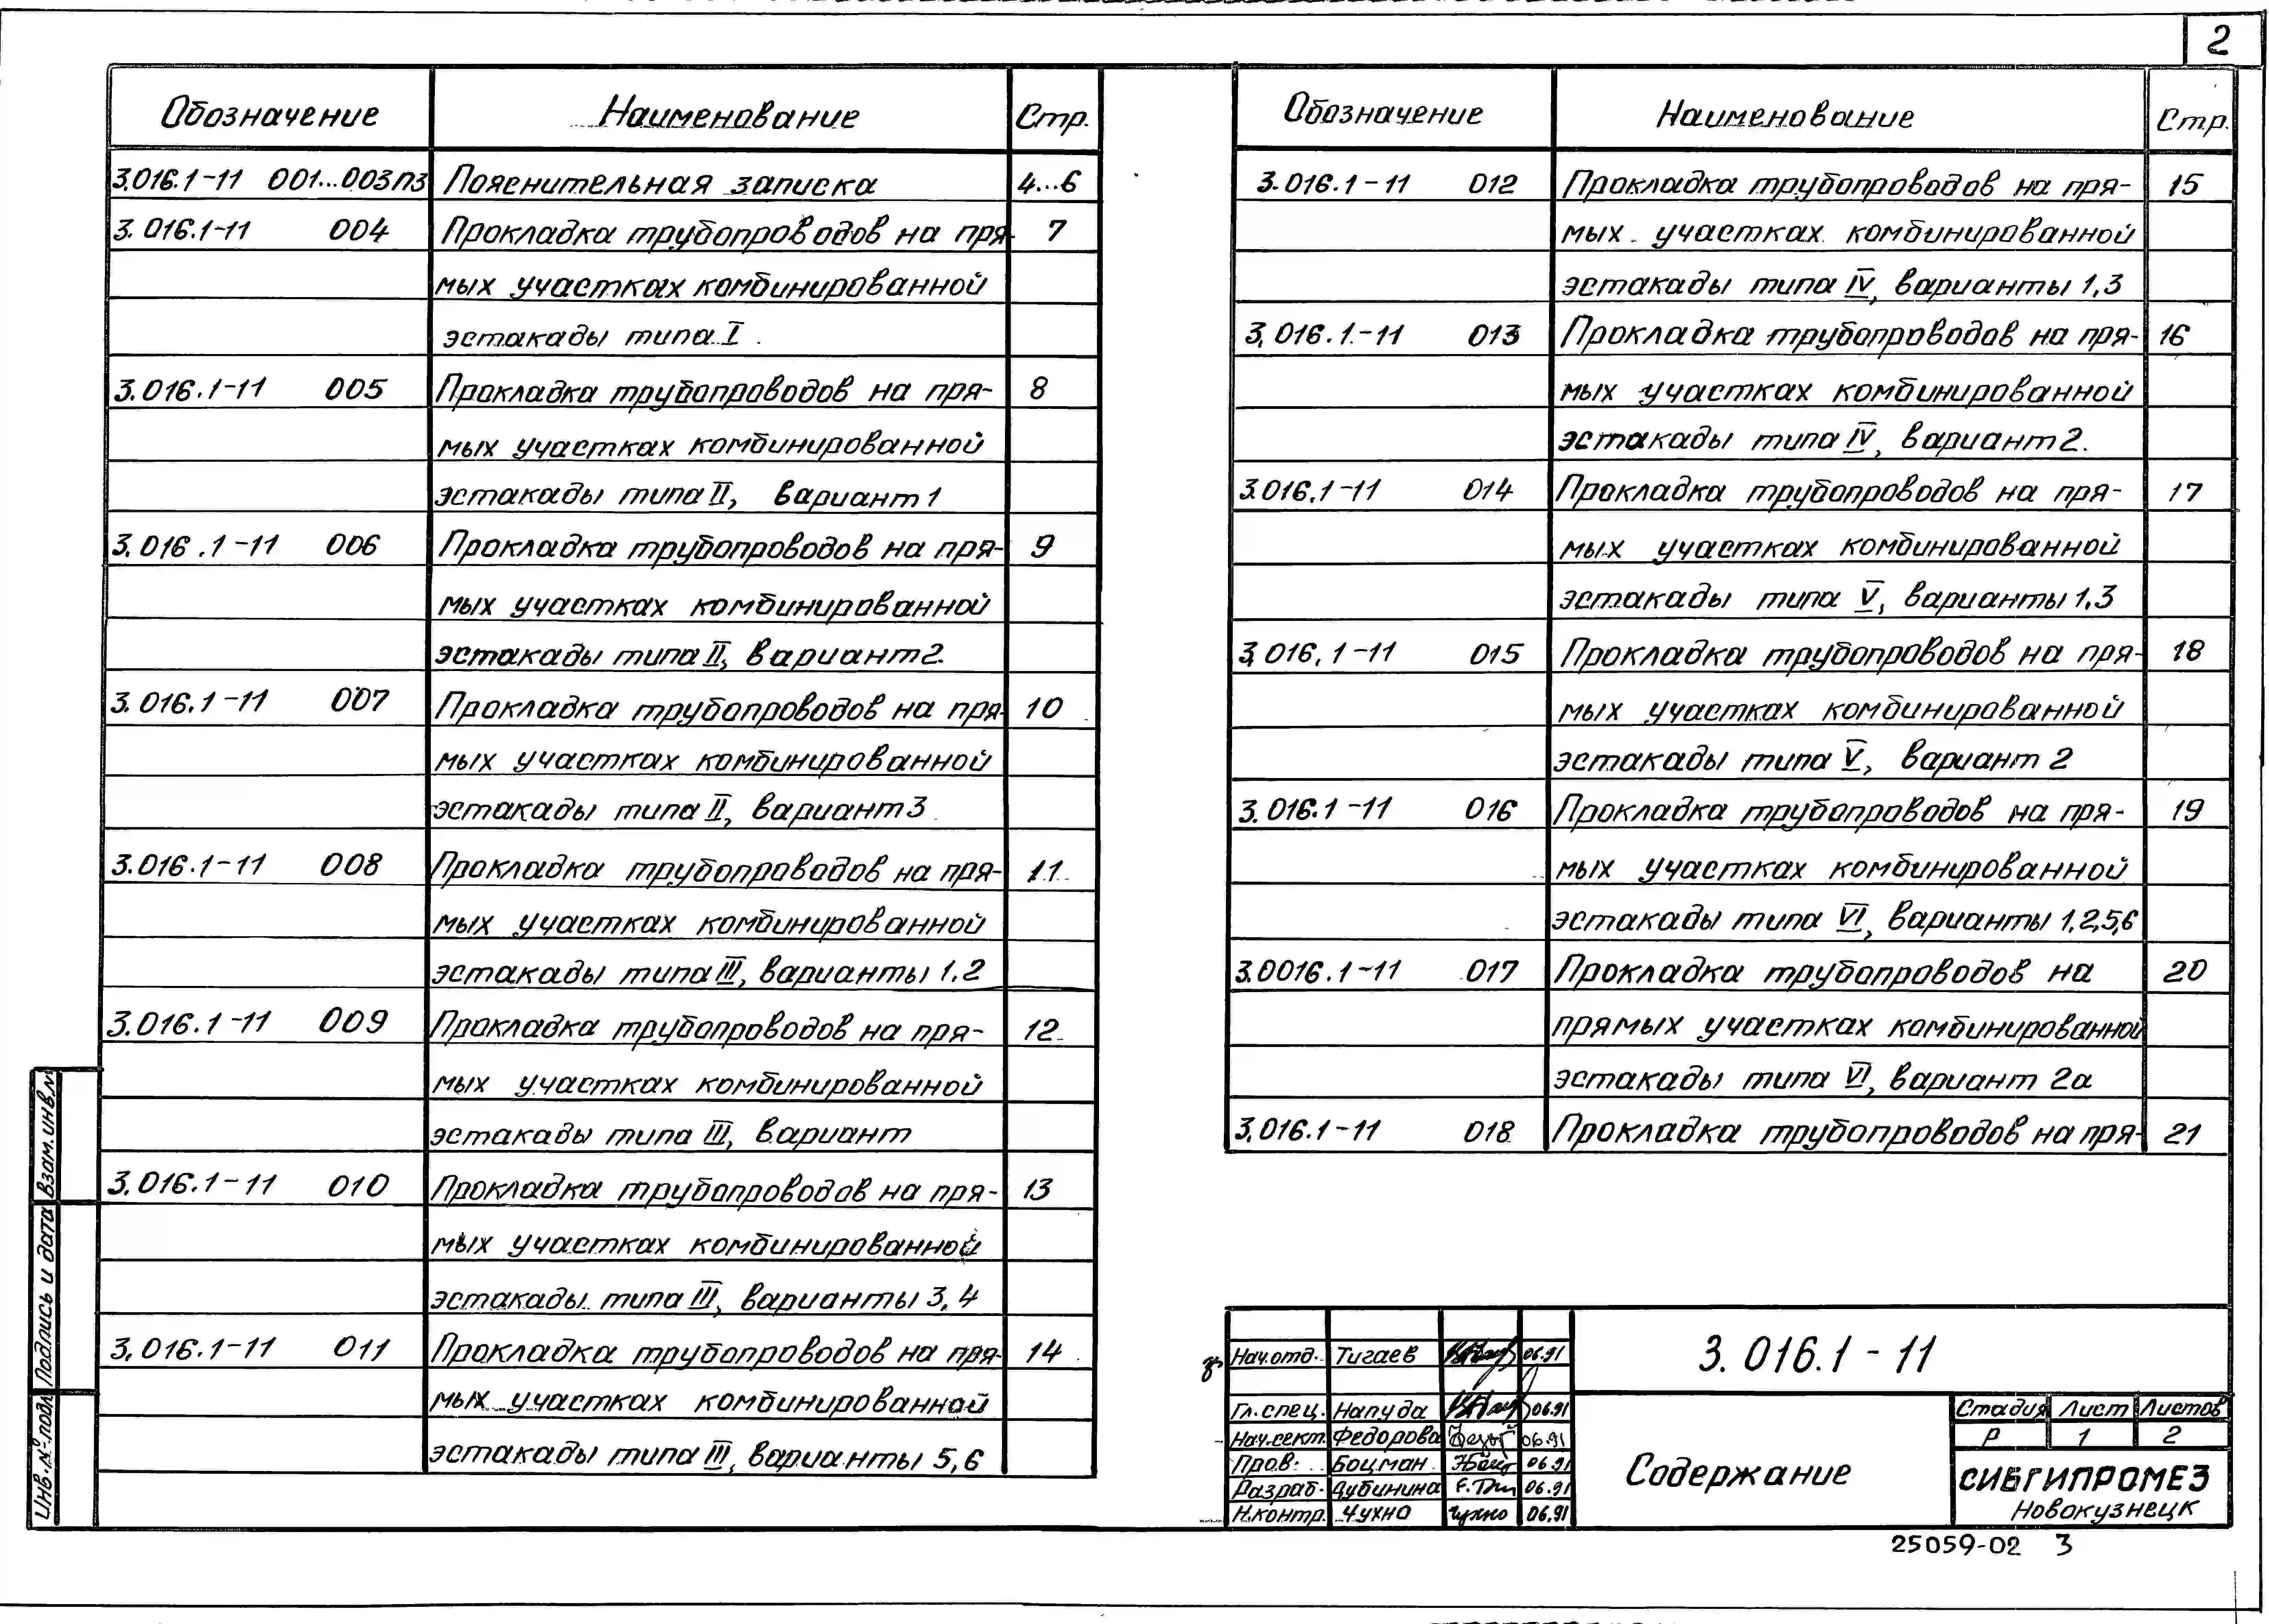 2
Обозначение Наименование Стр.
3.016.1-11 001...003ПЗ Пояснительная записка 4...6
3.016.1-11 004 Прокладка трубопроводов на пря- 7
мых участках комбинированной
эстакады типа I.
3.016.1-11 005 Прокладка трубопроводов на пря- 8
мых участках комбинированной
эстакады типа II, вариант 1
3.016.1-11 006 Прокладка трубопроводов на пря- 9
мых участках комбинированной
эстакады типа II, вариант 2.
3.016.1-11 007 Прокладка трубопроводов на пря- 10
мых участках комбинированной
эстакады типа II, вариант 3
3.016.1-11 008 Прокладка трубопроводов на пря- 11
мых участках комбинированной
эстакады типа III, варианты 1.2
3.016.1-11 009 Прокладка трубопроводов на пря- 12
мых участках комбинированной
эстакады типа III, вариант
3.016.1-11 010 Прокладка трубопроводов на пря- 13
мых участках комбинированной
эстакады типа III, варианты 3,4
3.016.1-11 011 Прокладка трубопроводов на пря- 14
мых участках комбинированной
эстакады типа III, варианты 5,6
Обозначение Наименование Стр.
3.016.1-11 012 Прокладка трубопроводов на пря- 15
мых участках комбинированной
эстакады типа IV, варианты 1,3
3.016.1-11 013 Прокладка трубопроводов на пря- 16
мых участках комбинированной
эстакады типа IV, вариант 2.
3.016.1-11 014 Прокладка трубопроводов на пря- 17
мых участках комбинированной
эстакады типа V, варианты 1,3
3.016.1-11 015 Прокладка трубопроводов на пря- 18
мых участках комбинированной
эстакады типа V, вариант 2
3.016.1-11 016 Прокладка трубопроводов на пря- 19
мых участках комбинированной
эстакады типа VI, варианты 1,2,5,6
3.0016.1-11 017 Прокладка трубопроводов на 20
прямых участках комбинированной
эстакады типа VI, вариант 2а
3.016.1-11 018 Прокладка трубопроводов на пря- 21
Взам.инв.№
Подпись и дата
Инв.№ подл.
Нач.отд. Тигаев 06.91
Гл.спец. Напуда 06.91
Нач.сект. Федорова 06.91
Пров. Боцман 06.91
Разраб. Дубинина 06.91
Н.контр. Чухно Чухно 06.91
3.016.1-11
Содержание
Стадия Лист Листов
Р 1 2
СИБГИПРОМЕЗ
Новокузнецк
25059-02 3